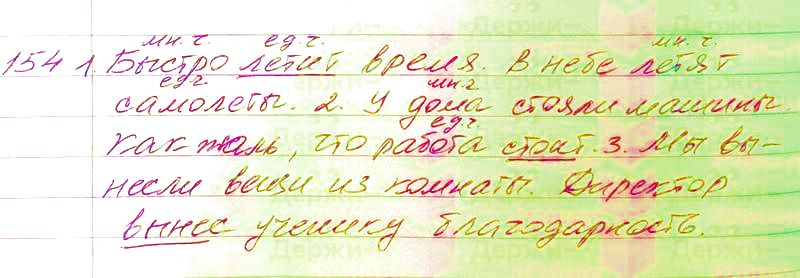 мн. ч. ед. ч. мн. ч.
154 1. Быстро летит время. В небе летят
ед.ч. мн.ч.
самолеты. 2. У дома стояли машины.
ед.ч.
Как жаль, что работа стоит. 3. Мы вы-
несли вещи из комнаты. Директор
вынес ученику благодарность.